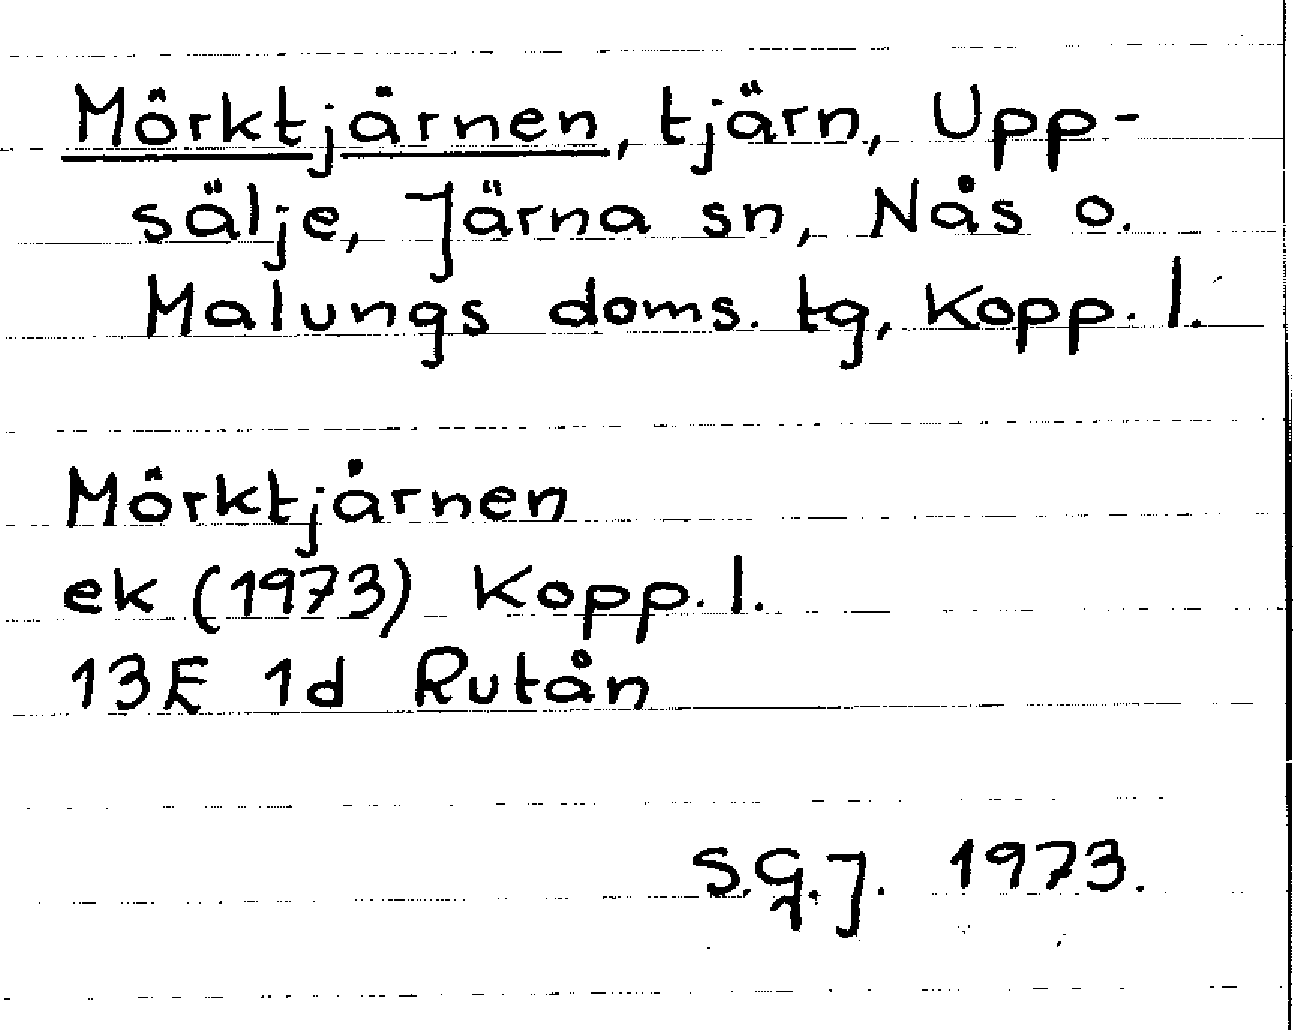 Mörktjärnen, tjärn, Upp-
sälje, Järna sn, Nås o.
Malungs doms. tg, Kopp. l.
Mörktjårnen
ek (1973) Kopp. l.
13E 1d Rutån
S.G.J. 1973.